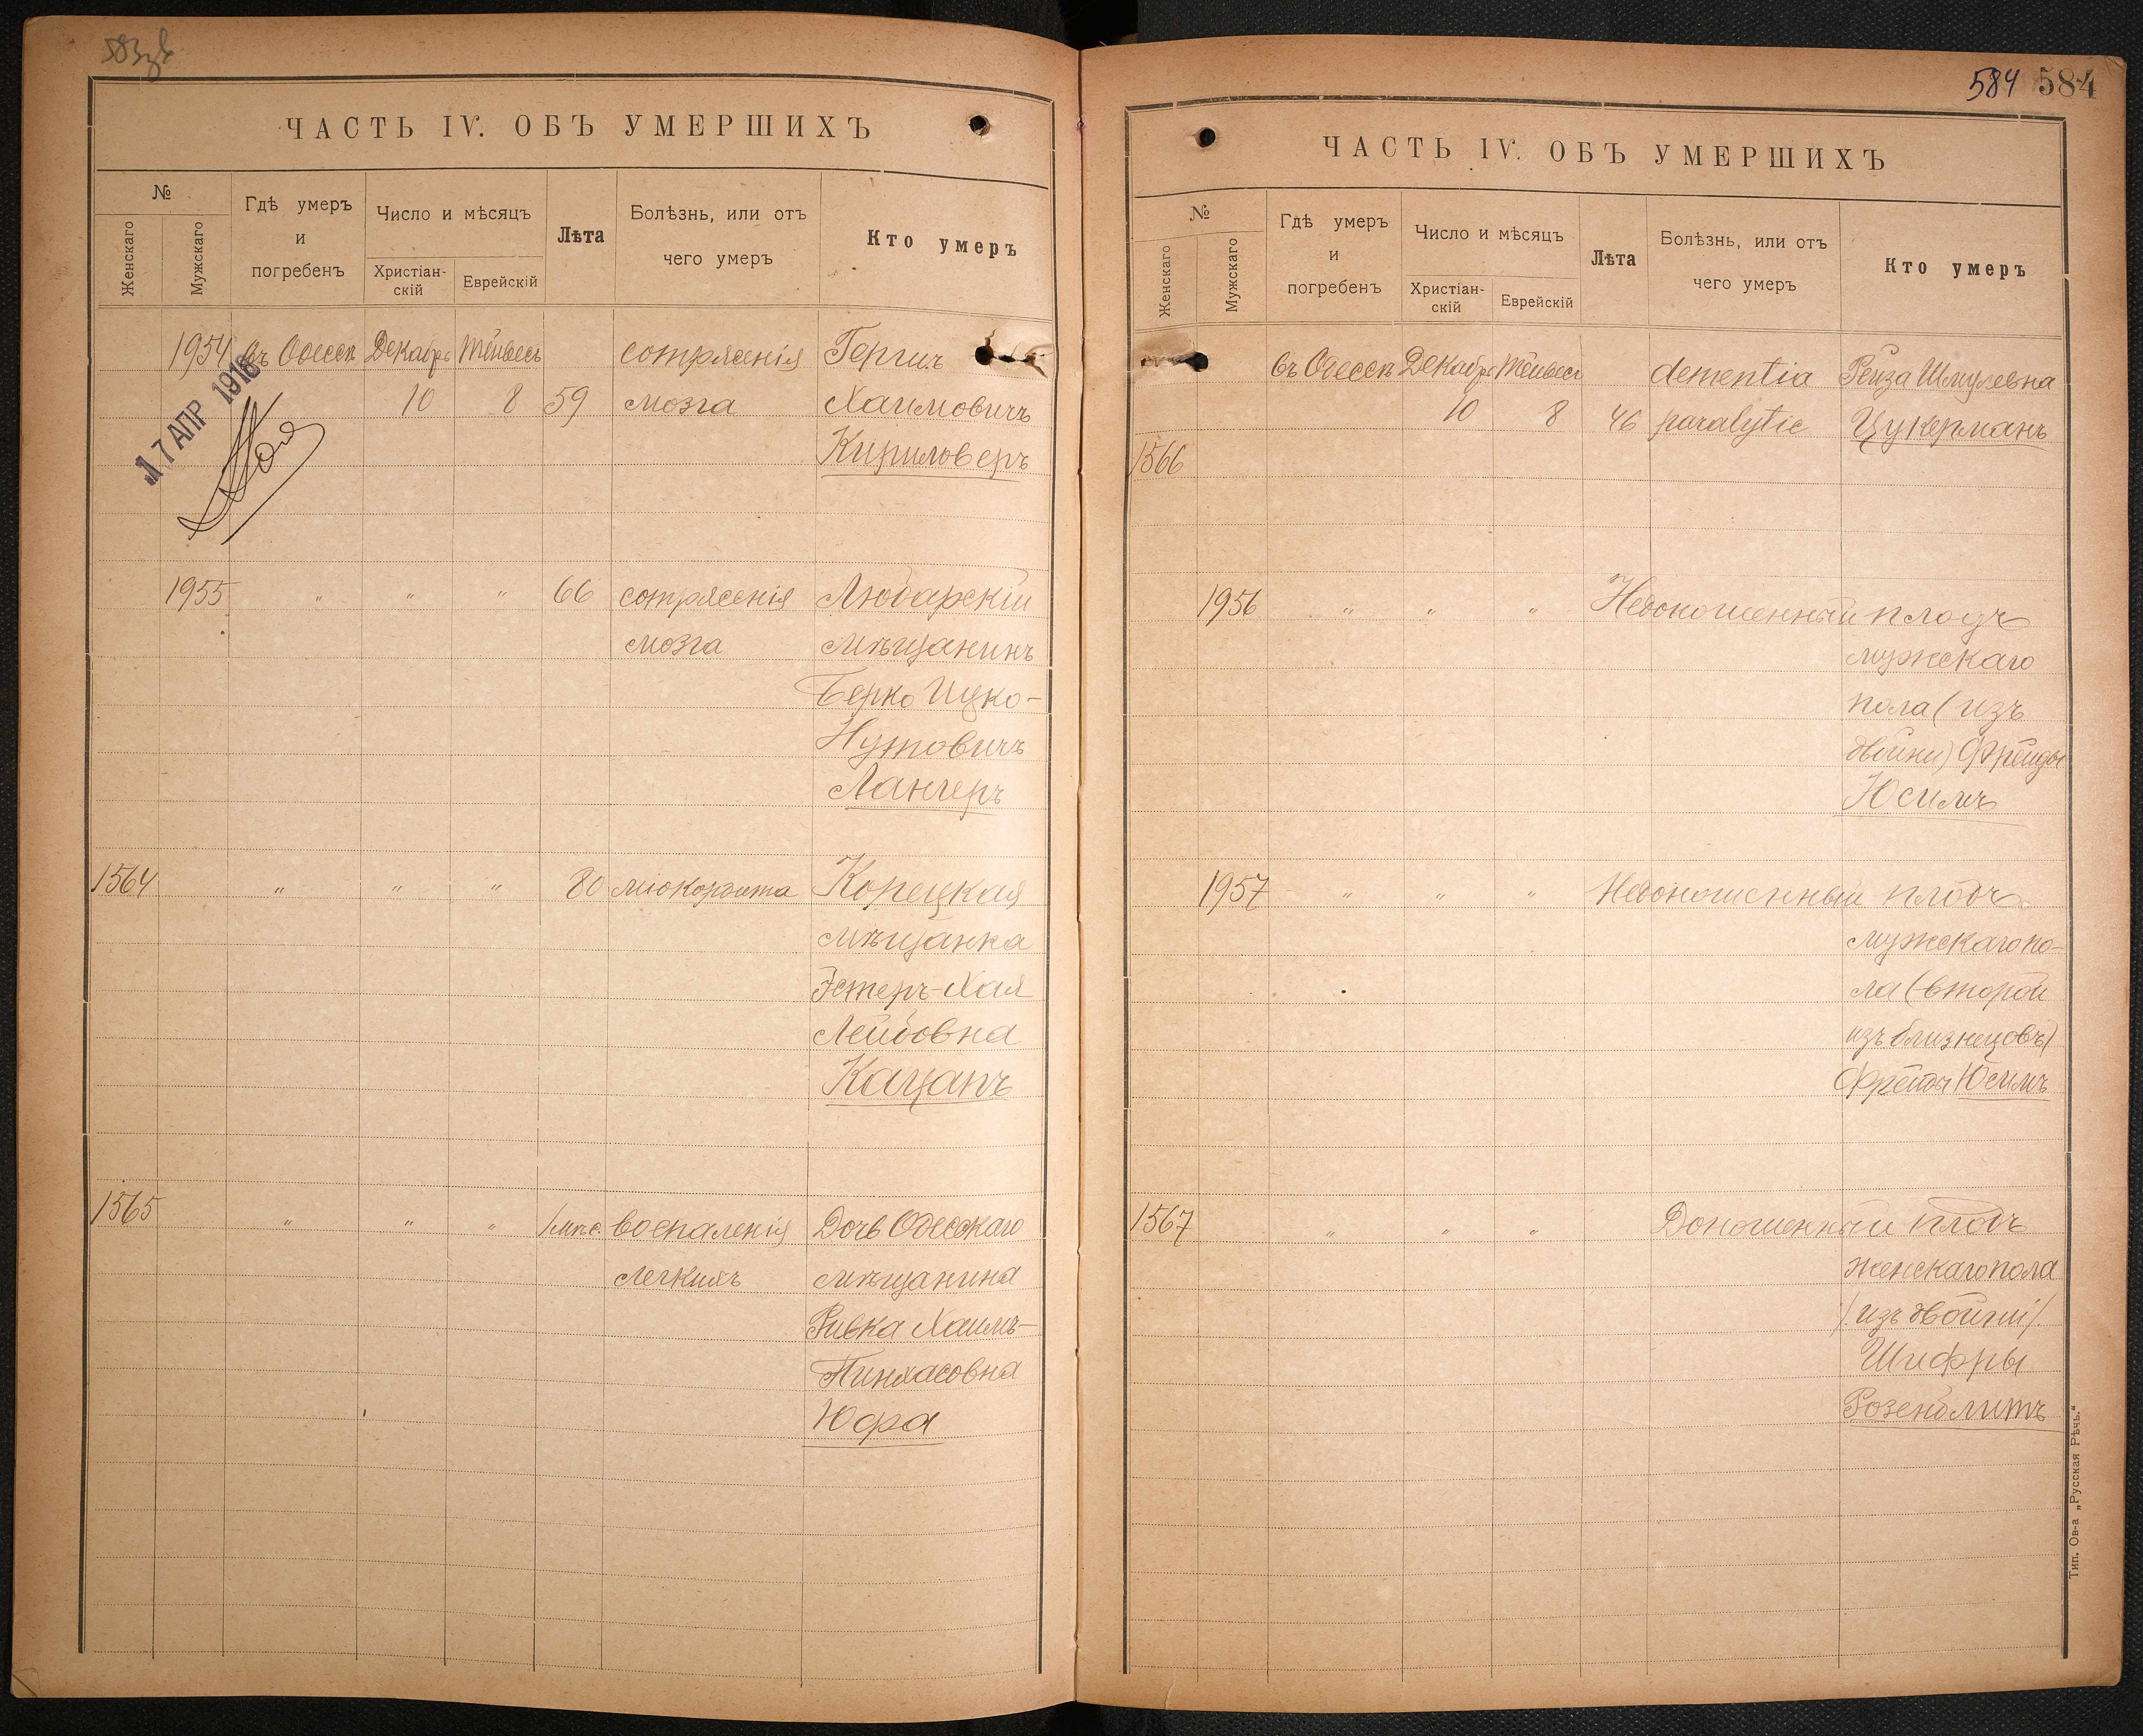 ЧАСТЬ IV. ОБЪ УМЕРШИХЪ
№
Женскаго
Мужскаго
Гдѣ умеръ
и
погребенъ
Число и мѣсяцъ
Христіан-
скій
Еврейскій
Лѣта
Болѣзнь, или отъ
чего умеръ
Кто умеръ
1954 въ Одессѣ Декабрь Тейвесъ сотрясенія Гершъ
10 8 59 мозга Хаимовичъ
Кириловеръ
17 АПР 1918
1955 " " " 66 сотрясенія Любарскій
мозга мѣщанинъ
Берко Ицко-
Нутовичъ
Лангеръ
1564 " " " 80 міокордита Корецкая
мѣщанка
Эстеръ-Хая
Лейбовна
Кацапъ
1565 " " " 1 мѣс. воспаленія Дочь Одесскаго
легкихъ мѣщанина
Ривка Хаимъ-
Пинхасовна
Юфа
584 584
ЧАСТЬ IV. ОБЪ УМЕРШИХЪ
№
Женскаго
Мужскаго
Гдѣ умеръ
и
погребенъ
Число и мѣсяцъ
Христіан-
скій
Еврейскій
Лѣта
Болѣзнь, или отъ
чего умеръ
Кто умеръ
въ Одессѣ Декабрь Тейвесъ dementia Рейза Шмулевна
10 8 46 paralytic Цукерманъ
1566
1956 " " " Недоношенный плодъ
мужскаго
пола (изъ
двойни) Фрейды
Юсимъ
1957 " " " Недоношенный плодъ
мужскаго по-
ла (второй
изъ близнецовъ)
Фрейды Юсимъ
1567 " " " Доношенный плодъ
женскаго пола
/изъ двойни/.
Шифры
Розенблитъ
Тип. Ов-а „Русская Рѣчь.“